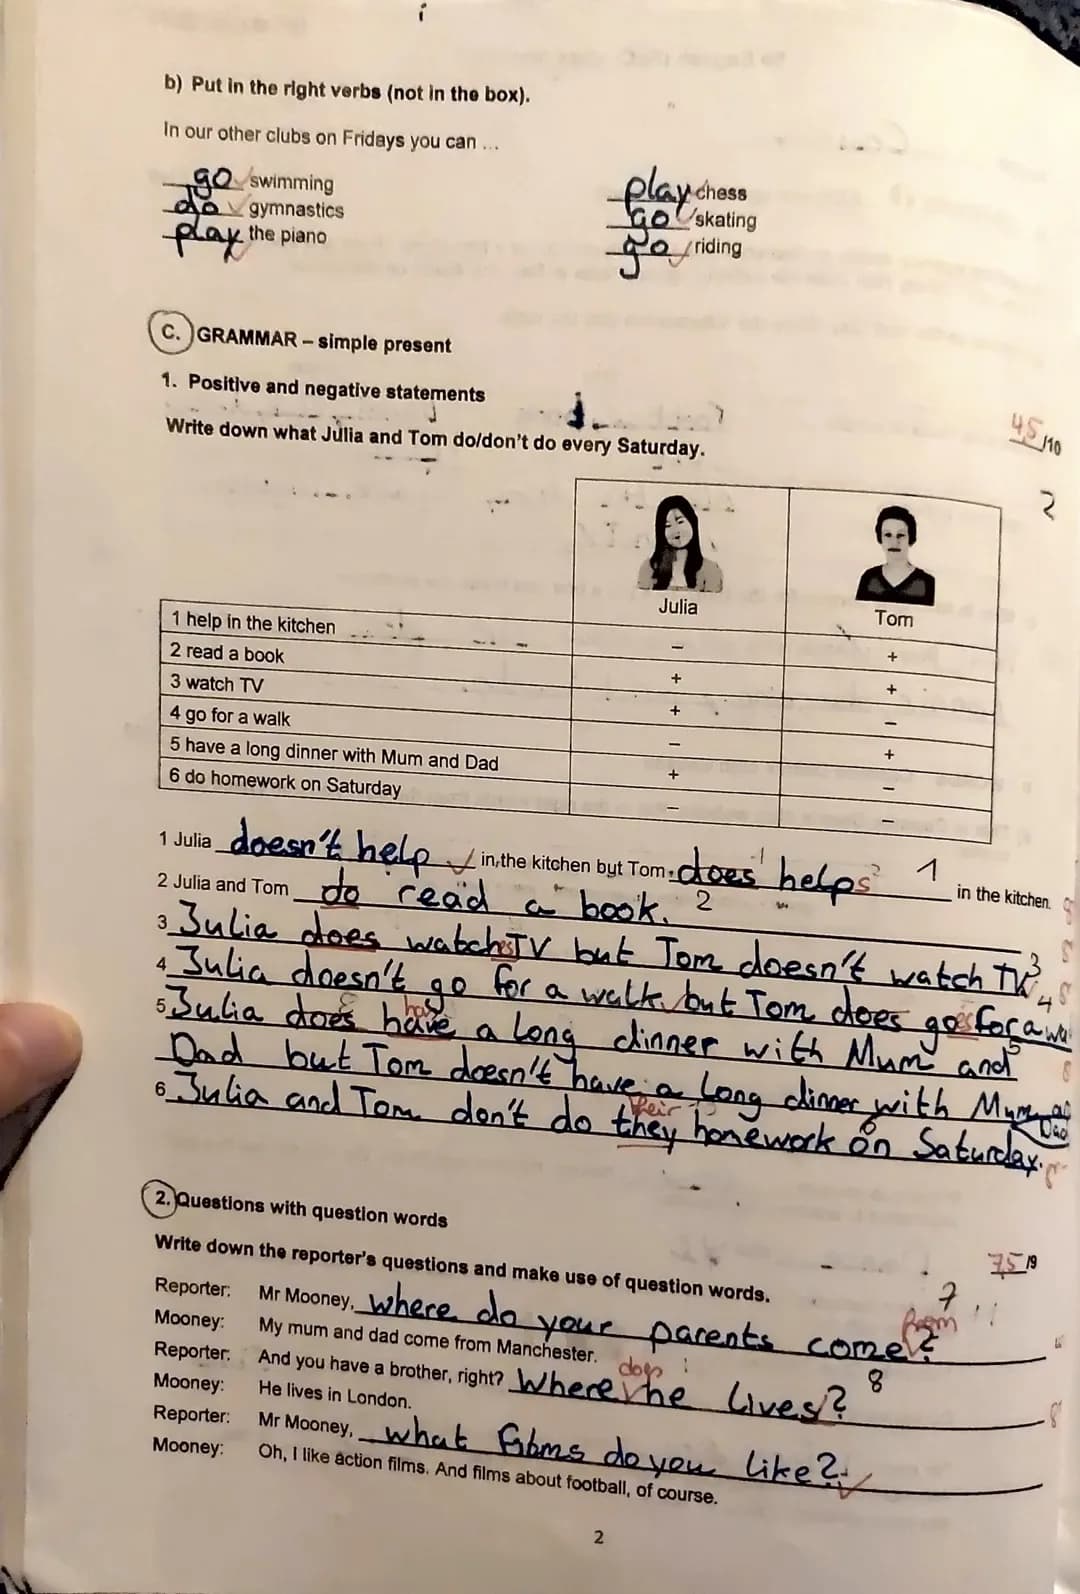 b) Put in the right verbs (not in the box).
In our other clubs on Fridays you can ...
go swimming play chess
do gymnastics go skating
play the piano go riding
C. GRAMMAR – simple present
1. Positive and negative statements
45/10
Write down what Julia and Tom do/don't do every Saturday.
2
Julia Tom
1 help in the kitchen – +
2 read a book + +
3 watch TV + –
4 go for a walk – +
5 have a long dinner with Mum and Dad + –
6 do homework on Saturday – –
1 Julia doesn't help in the kitchen byt Tom does helps 1 in the kitchen.
2 Julia and Tom do read a book. 2
3 Julia does watches TV but Tom doesn't watch TV 3
4 Julia doesn't go for a walk but Tom does goes for a wa 4
has
5 Julia does have a long dinner with Mum and 5
Dad but Tom doesn't have a long dinner with Mum
Dad
their
6 Julia and Tom don't do they homework on Saturday. 6
2. Questions with question words
75/9
Write down the reporter's questions and make use of question words.
7
from
Reporter: Mr Mooney, where do your parents come?
Mooney: My mum and dad come from Manchester.
does 8
Reporter: And you have a brother, right? Where he lives?
Mooney: He lives in London.
Reporter: Mr Mooney, what do you like?
Mooney: Oh, I like action films. And films about football, of course.
2